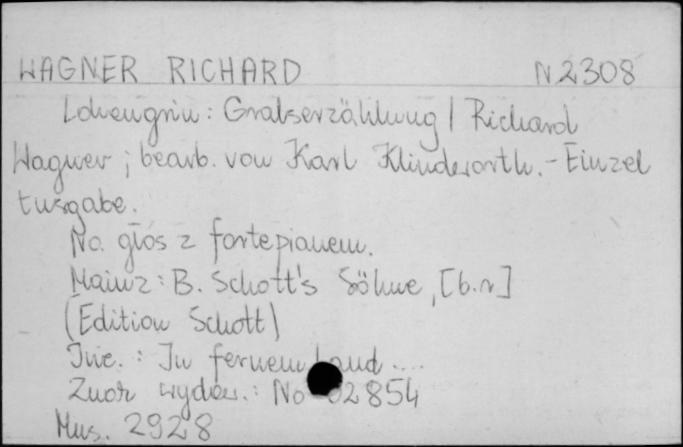 WAGNER RICHARD N 2308
Lohengrin: Gralserzählung / Richard
Wagner ; bearb. von Karl Klindworth. - Einzel
tusgabe.
Na głos z fortepianem.
Mainz: B. Schott's Söhne, [b.r]
(Edition Schott)
Inc. : In fernem Land ....
Znak wydaw.: No 02854
Mus. 2928